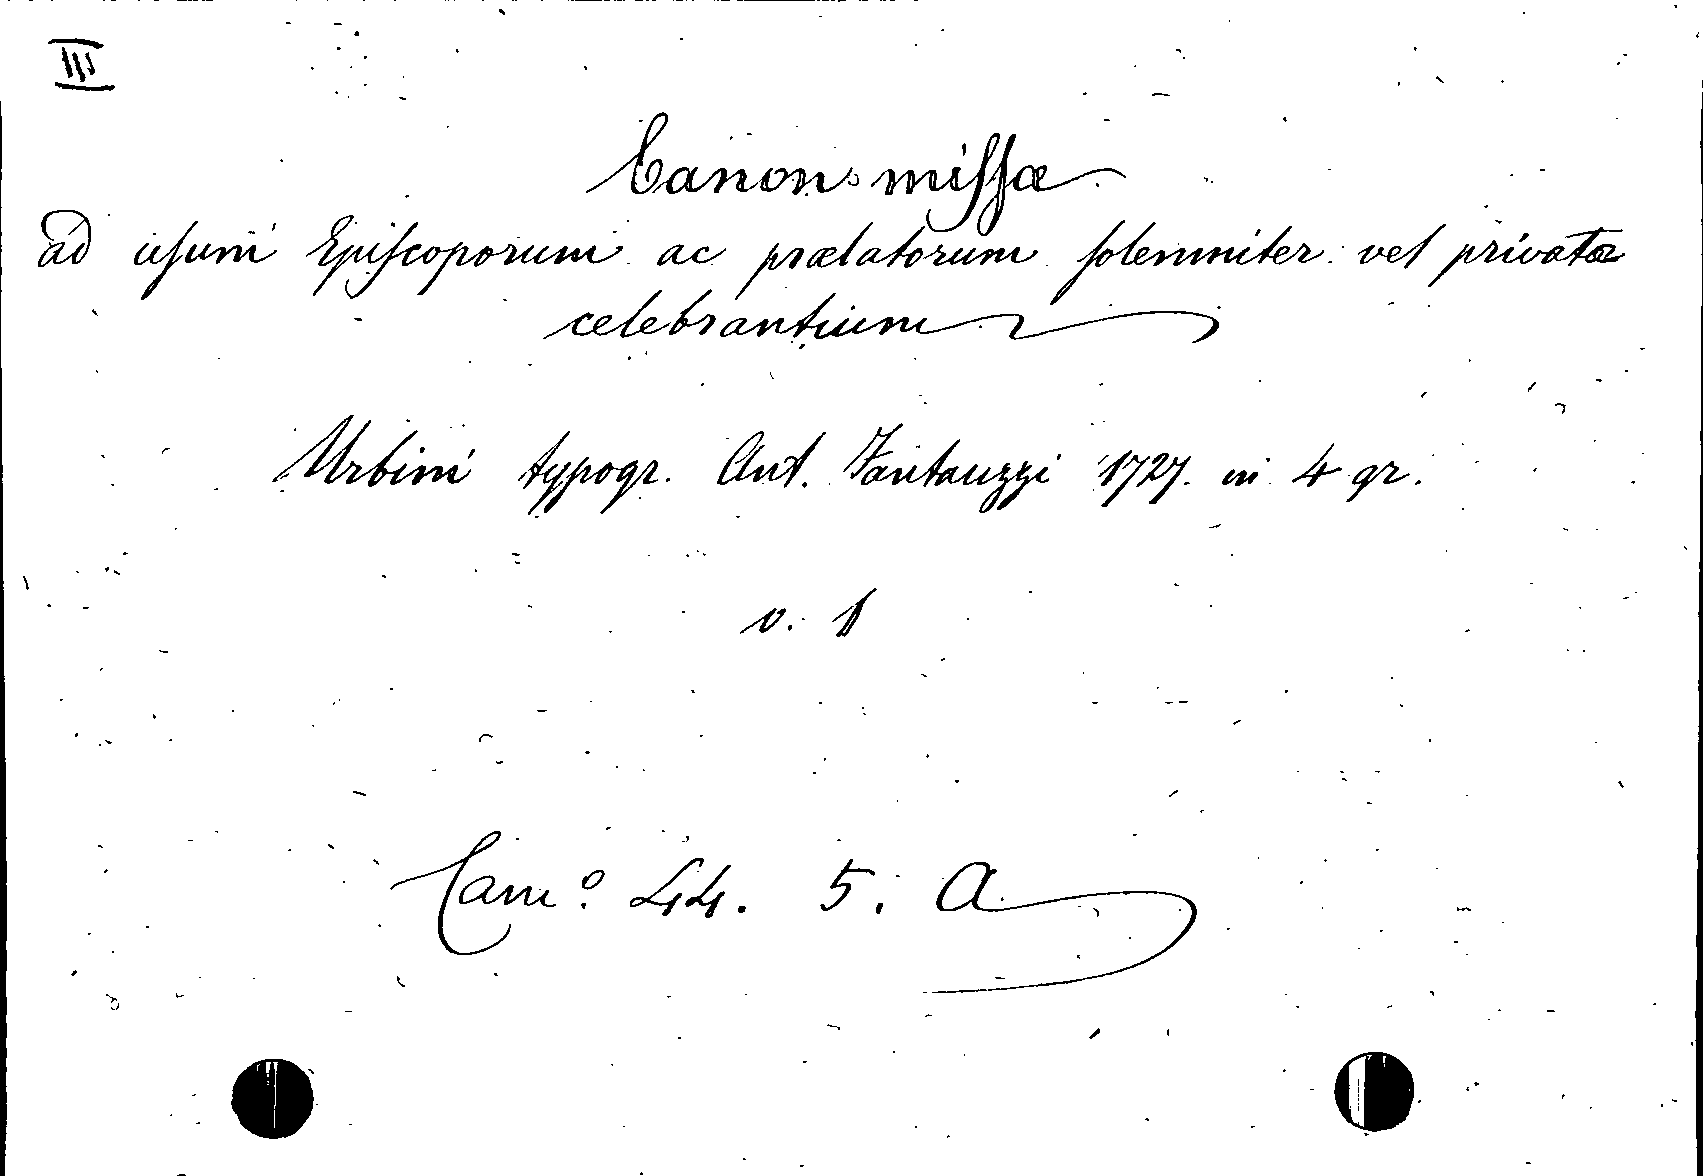 III
Canon missæ
ad usum Episcoporum ac prælatorum solemniter vel privatæ
celebrantium
Urbini typogr. Ant. Fantauzzi 1727. in 4 gr.
v. 1
Cam.º 44. 5. A